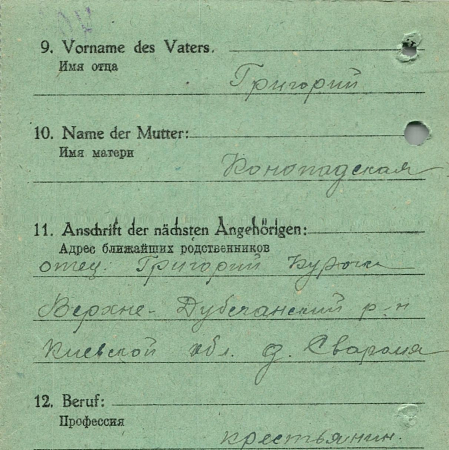 9. Vorname des Vaters.
Имя отца
Григорий
10. Name der Mutter:
Имя матери
Конопадская
11. Anschrift der nächsten Angehörigen:
Адрес ближайших родственников
отец: Григорий
Верхне-Дубечанский р-н
Киевской обл. д. Сваромя
12. Beruf:
Профессия
крестьянин.